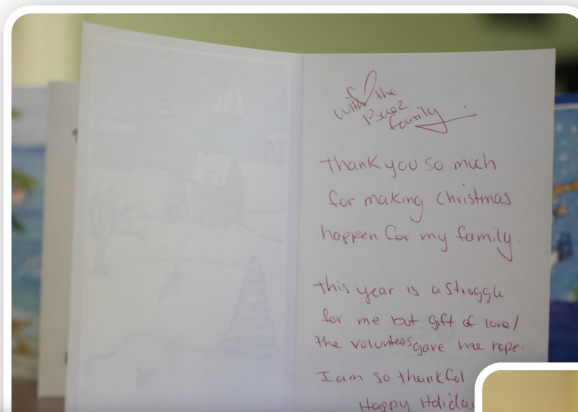 with the
Perez
family
Thank you so much
for making christmas
happen for my family.
This year is a struggle
for me but gift of love/
the volunteers gave me hope.
I am so thankful
Happy Holida